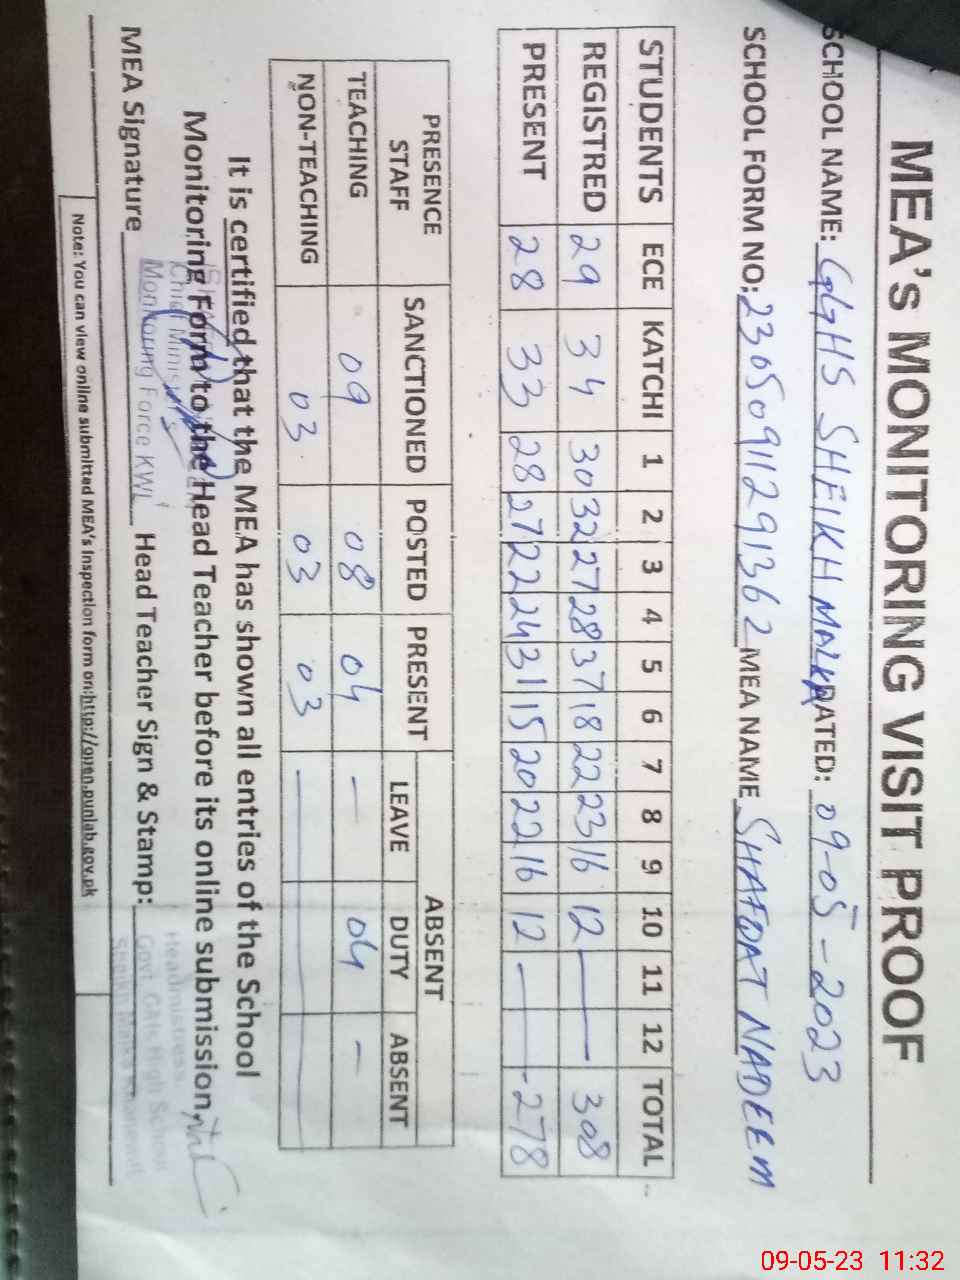 MEA's MONITORING VISIT PROOF
SCHOOL NAME: GGHS SHEIKH MALKA DATED: 09-05-2023
SCHOOL FORM NO: 23050911291362 MEA NAME SHAFQAT NADEEM
STUDENTS ECE KATCHI 1 2 3 4 5 6 7 8 9 10 11 12 TOTAL
REGISTRED 29 34 30 32 27 28 37 18 22 23 16 12 — 308
PRESENT 28 33 28 27 22 24 31 15 20 22 16 12 — - 278
PRESENCE STAFF SANCTIONED POSTED PRESENT ABSENT
LEAVE DUTY ABSENT
TEACHING 09 08 04 — 04 —
NON-TEACHING 03 03 03 —
It is certified that the MEA has shown all entries of the School
Monitoring Form to the Head Teacher before its online submission.
Chief Minister's
Monitoring Force KWL
MEA Signature Head Teacher Sign & Stamp:
Headmistress
Govt. Girls High School
Sheikh Malka Khanewal
Note: You can view online submitted MEA's Inspection form on:http://open.punjab.gov.pk
09-05-23 11:32